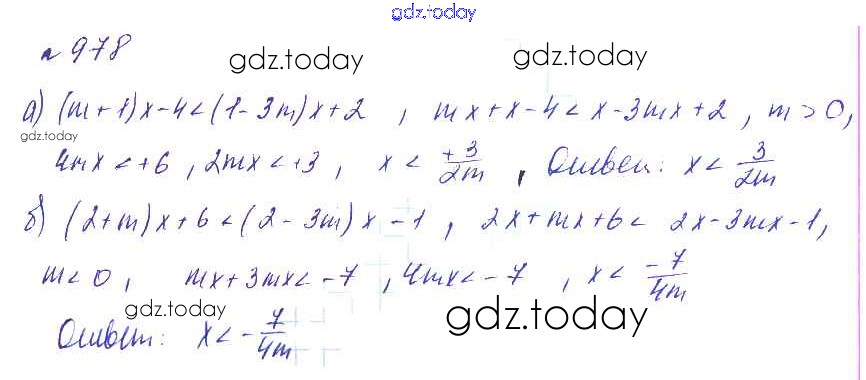 gdz.today
№ 978
gdz.today gdz.today
а) (m+1)x-4<(1-3m)x+2, mx+x-4<x-3mx+2, m>0,
gdz.today
4mx<+6, 2mx<+3, x<+3/2m, Ответ: x<3/2m
б) (2+m)x+6<(2-3m)x-1, 2x+mx+6<2x-3mx-1,
m<0, mx+3mx<-7, 4mx<-7, x<-7/4m
gdz.today gdz.today
Ответ: x<-7/4m